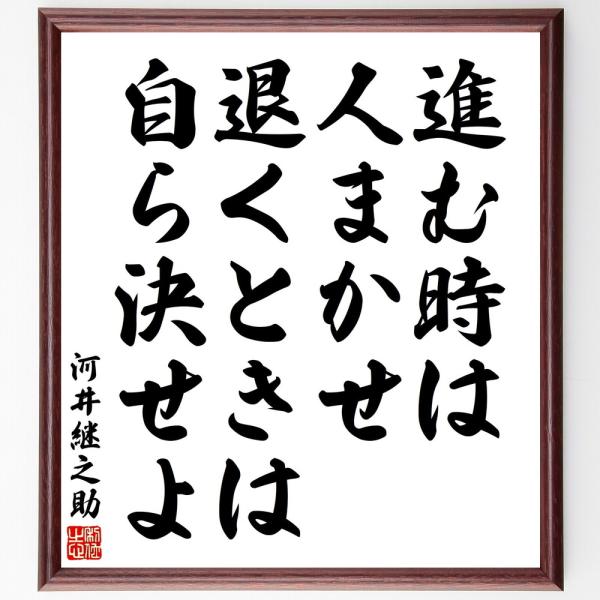 進む時は
人まかせ
退くときは
自ら決せよ
河井継之助